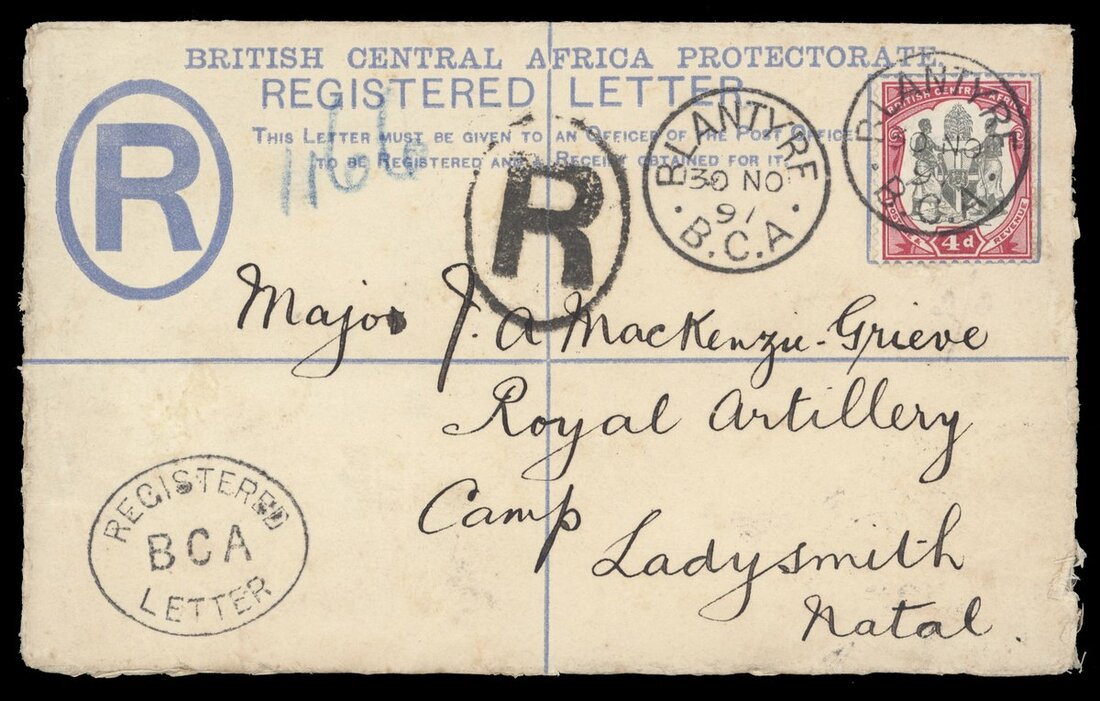 BRITISH CENTRAL AFRICA PROTECTORATE.
REGISTERED LETTER
THIS LETTER MUST BE GIVEN TO AN OFFICER OF THE POST OFFICE
TO BE REGISTERED AND A RECEIPT OBTAINED FOR IT.
R
1166
R
BLANTYRE
30 NO
97
B.C.A.
BLANTYRE
30 NO
9
B.C.A
BRITISH CENTRAL AFRICA
POST & REVENUE
4d
Major J. A MacKenzie-Grieve
Royal Artillery
Camp
Ladysmith
Natal.
REGISTERED
BCA
LETTER